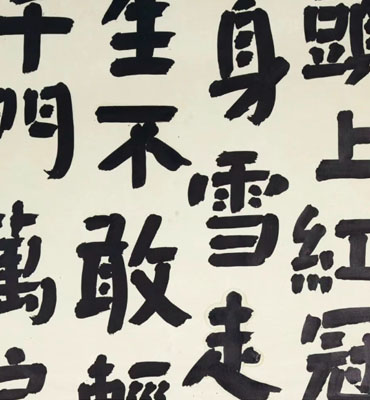 頭上紅冠
身雪走
生不敢輕
千門萬户